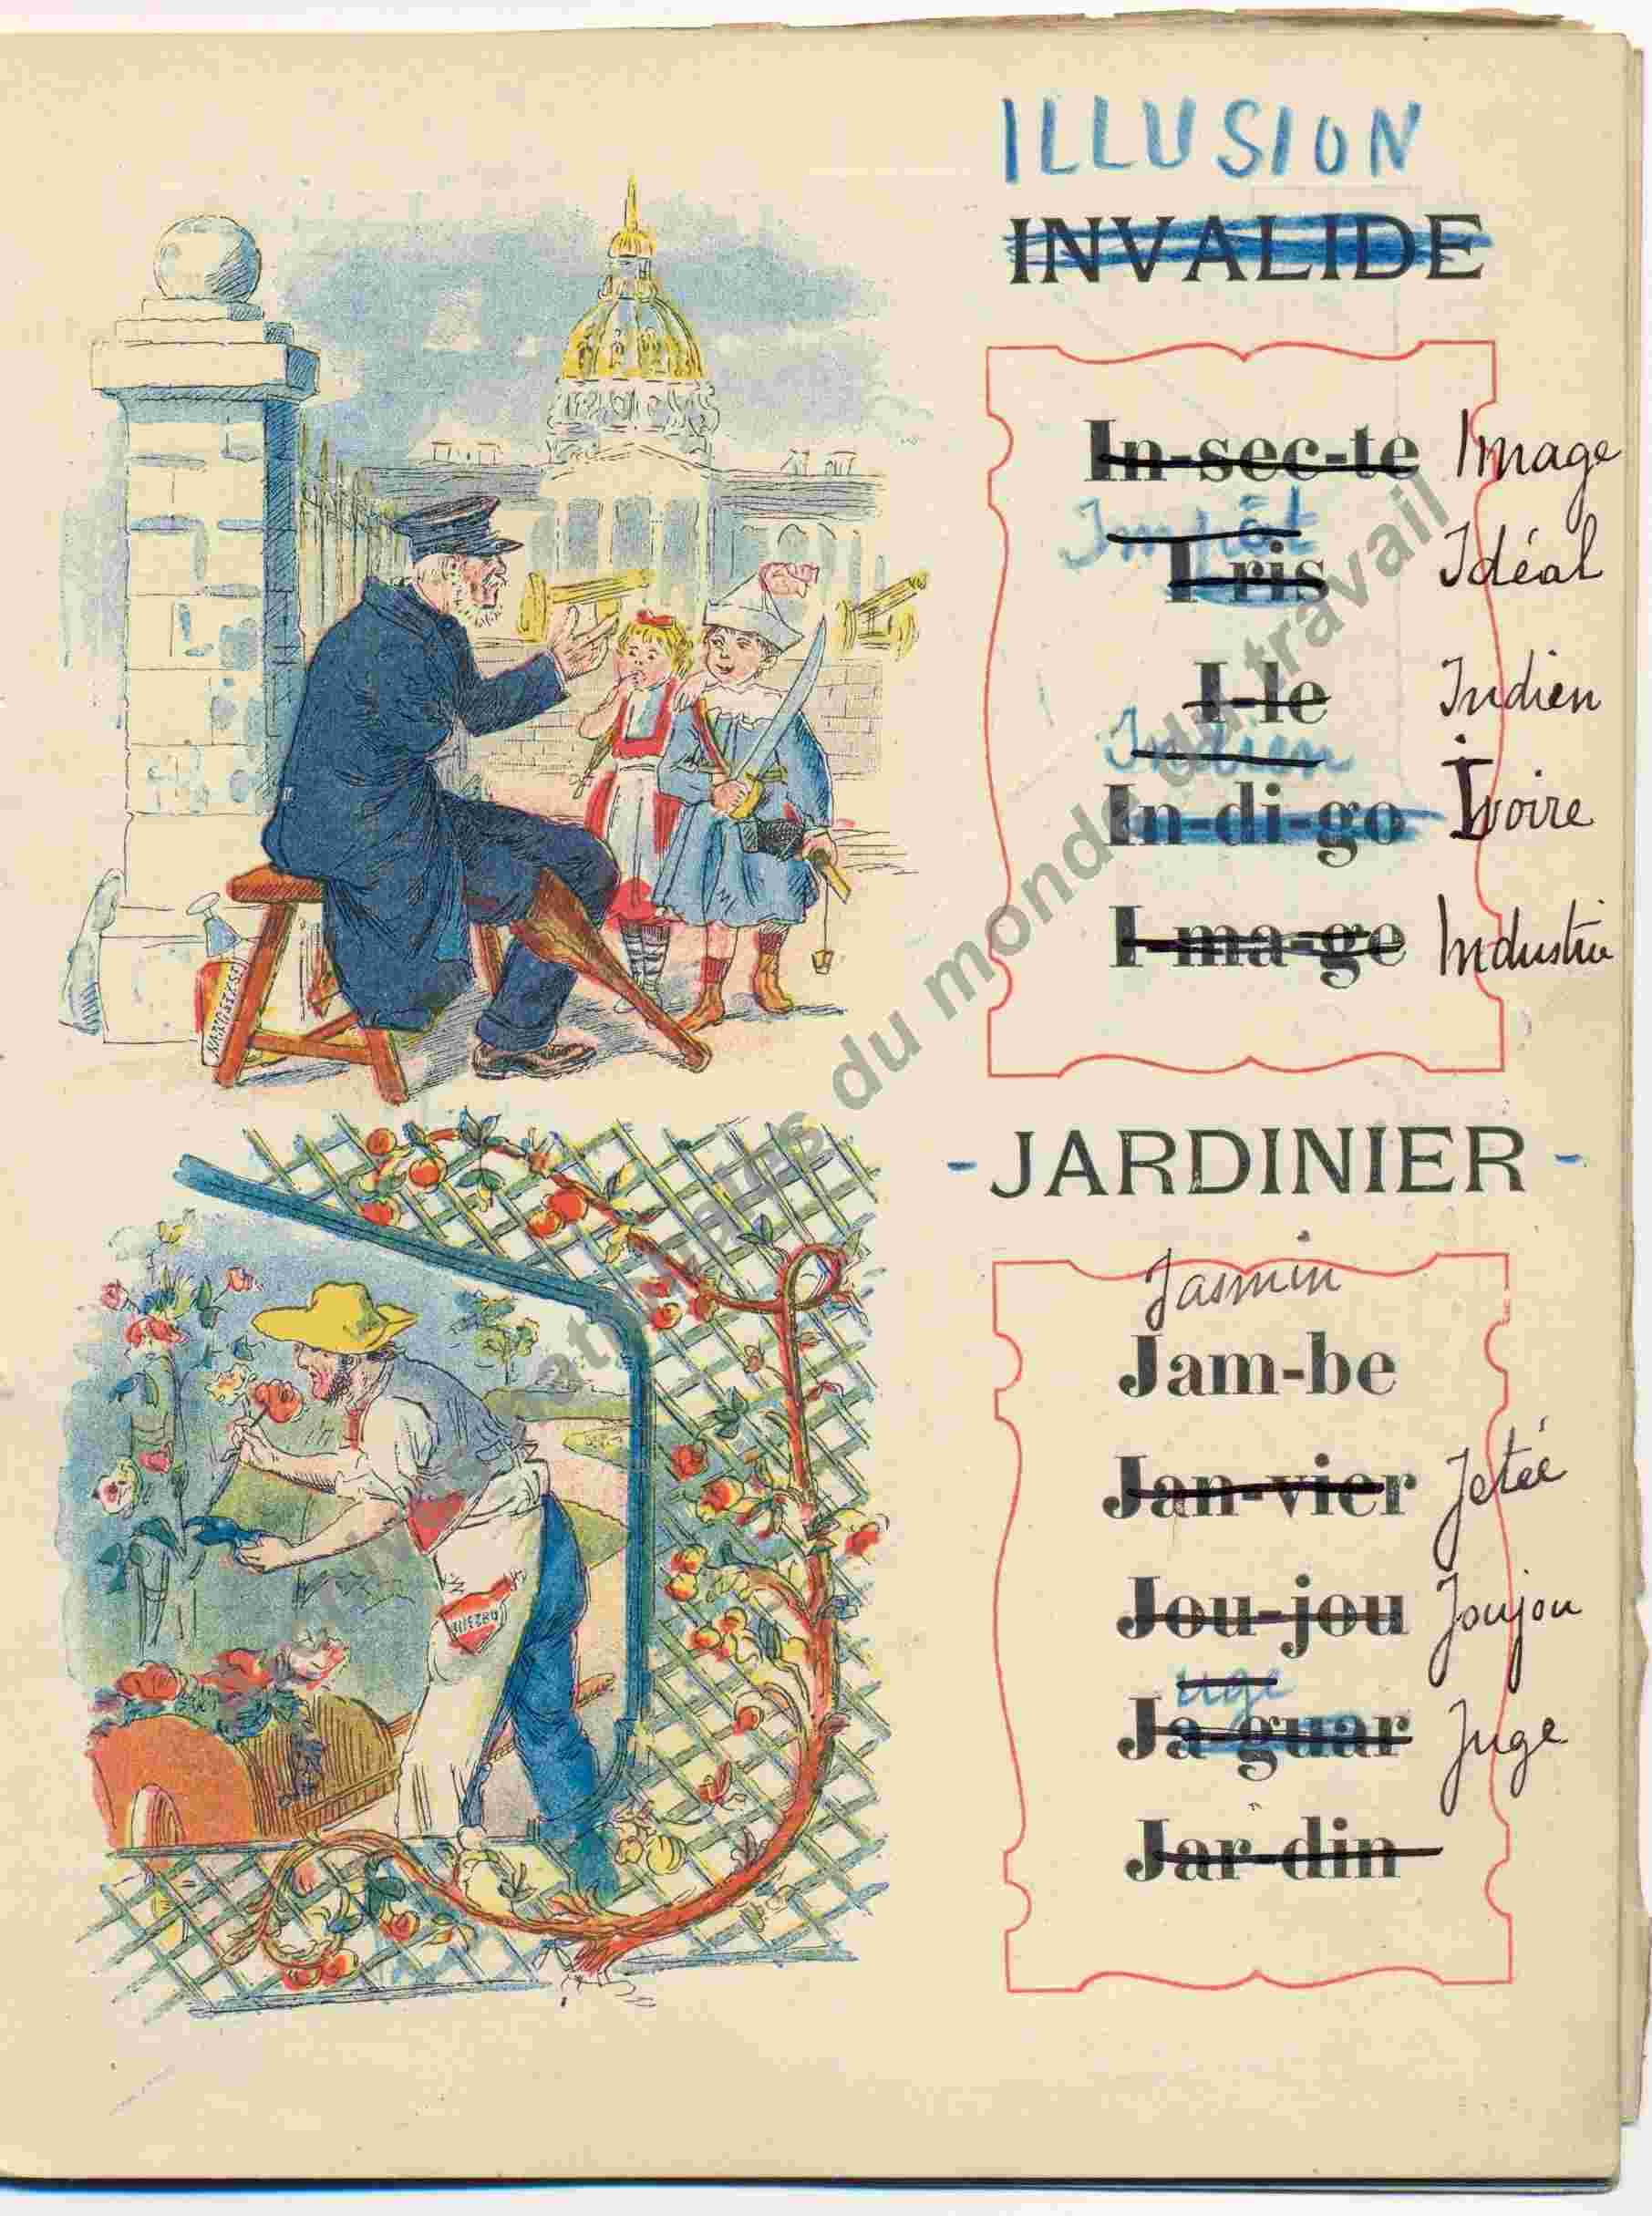 ILLUSION
INVALIDE
In-sec-te Image
Impôt
I ris Idéal
I-le Indien
Indien
In-di-go Ivoire
I-ma-ge Industrie
- JARDINIER -
Jasmin
Jam-be
Jan-vier Jetée
Jou-jou Joujou
uge
Ja-guar Juge
Jar-din
archives nationales du monde du travail